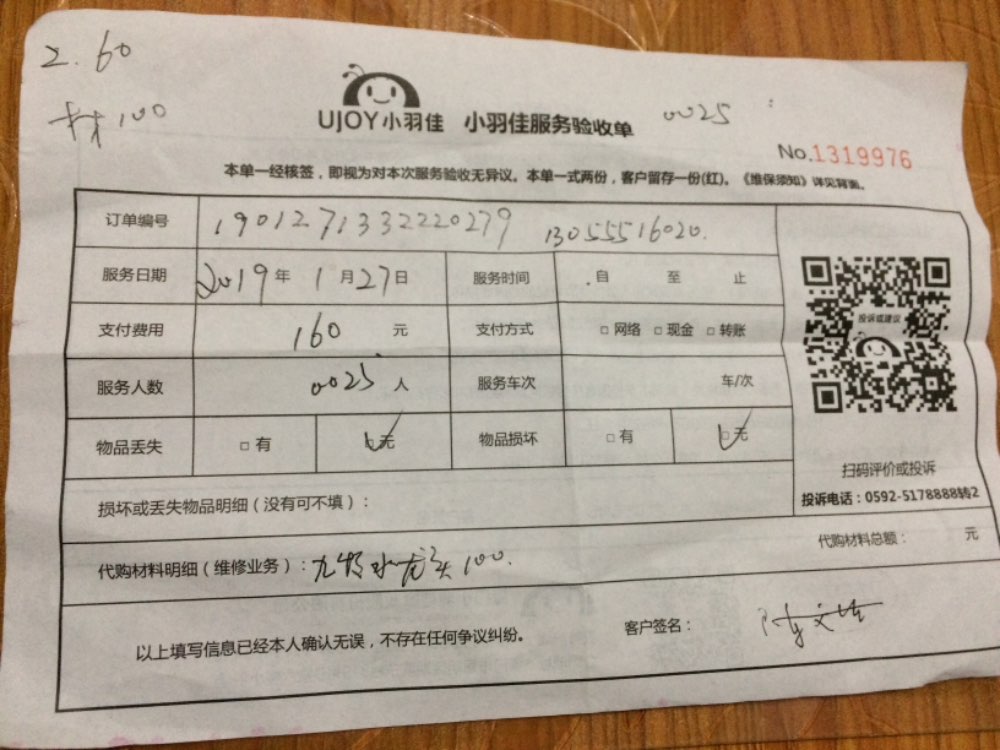 2.60
材100
UJOY小羽佳 小羽佳服务验收单 0025
No.1319976
本单一经核签，即视为对本次服务验收无异议。本单一式两份，客户留存一份(红)。《维保须知》详见背面。
订单编号 1901271332220279 13055516020.
服务日期 2019年1月27日 服务时间 自 至 止
支付费用 160 元 支付方式 □网络 □现金 □转账
服务人数 0025 人 服务车次 车/次
物品丢失 □有 □无 物品损坏 □有 □无
投诉或建议
扫码评价或投诉
投诉电话：0592-5178888转2
损坏或丢失物品明细（没有可不填）：
代购材料明细（维修业务）：九牧水龙头100.
代购材料总额： 元
以上填写信息已经本人确认无误，不存在任何争议纠纷。
客户签名：